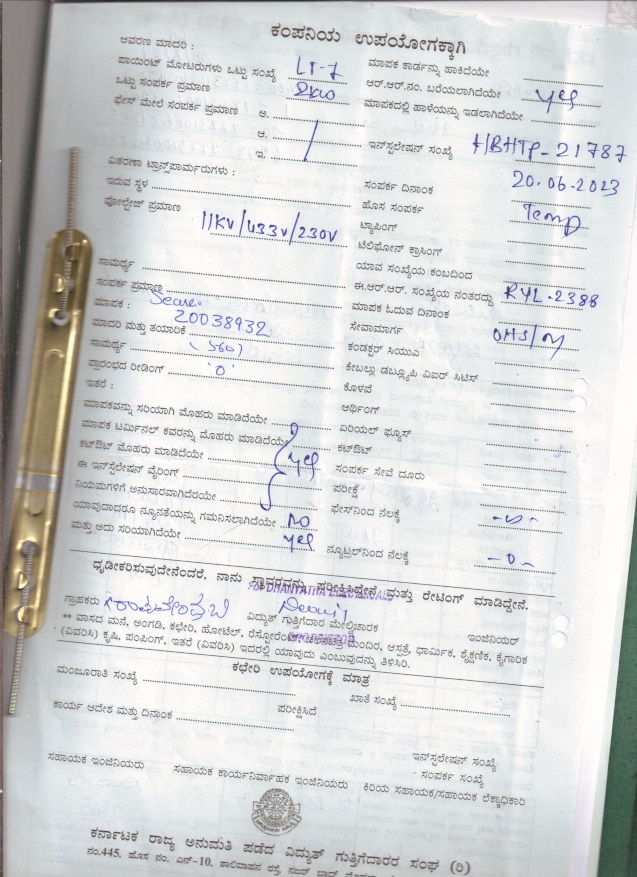 ಕಂಪನಿಯ ಉಪಯೋಗಕ್ಕಾಗಿ
ಆವರಣ ಮಾದರಿ :
ಪಾಯಿಂಟ್ ಮೋಟರುಗಳು ಒಟ್ಟು ಸಂಖ್ಯೆ LT-7
ಒಟ್ಟು ಸಂಪರ್ಕ ಪ್ರಮಾಣ 2kw
ಫೇಸ್ ಮೇಲೆ ಸಂಪರ್ಕ ಪ್ರಮಾಣ ಅ.
ಆ.
ಇ.
ವಿತರಣಾ ಟ್ರಾನ್ಸ್‌ಪಾರ್ಮರುಗಳು :
ಇರುವ ಸ್ಥಳ
ವೋಲ್ಟೇಜ್ ಪ್ರಮಾಣ 11KV/433V/230V
ಸಾಮರ್ಥ್ಯ
ಸಂಪರ್ಕ ಪ್ರಮಾಣ
ಮಾಪಕ :
20038932
ಮಾದರಿ ಮತ್ತು ತಯಾರಿಕೆ
ಸಾಮರ್ಥ್ಯ
ಪ್ರಾರಂಭದ ರೀಡಿಂಗ್ '0'
ಇತರೆ :
ಮಾಪಕವನ್ನು ಸರಿಯಾಗಿ ಮೊಹರು ಮಾಡಿದೆಯೇ
ಮಾಪಕ ಟರ್ಮಿನಲ್ ಕವರನ್ನು ಮೊಹರು ಮಾಡಿದೆಯೇ
ಕಟ್‌ಔಟ್ ಮೊಹರು ಮಾಡಿದೆಯೇ yes
ಈ ಇನ್‌ಸ್ಟಲೇಷನ್ ವೈರಿಂಗ್
ನಿಯಮಗಳಿಗೆ ಅನುಸಾರವಾಗಿದೆರೆಯೇ
ಯಾವುದಾದರೂ ನ್ಯೂನತೆಯನ್ನು ಗಮನಿಸಲಾಗಿದೆಯೇ NO
ಮತ್ತು ಅದು ಸರಿಯಾಗಿದೆಯೇ yes
ಮಾಪಕ ಕಾರ್ಡನ್ನು ಹಾಕಿದೆಯೇ
ಆರ್.ಆರ್.ನಂ. ಬರೆಯಲಾಗಿದೆಯೇ yes
ಮಾಪಕದಲ್ಲಿ ಹಾಳೆಯನ್ನು ಇಡಲಾಗಿದೆಯೇ
ಇನ್‌ಸ್ಟಲೇಷನ್ ಸಂಖ್ಯೆ HBHTP-21787
ಸಂಪರ್ಕ ದಿನಾಂಕ 20.06.2023
ಹೊಸ ಸಂಪರ್ಕ Temp
ಟ್ಯಾಪಿಂಗ್
ಟೆಲಿಫೋನ್ ಕ್ರಾಸಿಂಗ್
ಯಾವ ಸಂಖ್ಯೆಯ ಕಂಬದಿಂದ
ಈ.ಆರ್.ಆರ್. ಸಂಖ್ಯೆಯ ನಂತರದ್ದು RYL-2388
ಮಾಪಕ ಓದುವ ದಿನಾಂಕ
ಸೇವಾಮಾರ್ಗ
ಕಂಡಕ್ಟರ್ ಸಿಯುವಿ
ಕೇಬಲ್ಲು ಡಬ್ಲ್ಯೂಪಿ ವಿಐರ್ ಸಿಟಿಸ್
ಕೊಳವೆ
ಆರ್ಥಿಂಗ್
ಏರಿಯಲ್ ಫ್ಯೂಸ್
ಕಟ್‌ಔಟ್
ಸಂಪರ್ಕ ಸೇವೆ ದೂರು
ಪರೀಕ್ಷೆ
ಫೇಸ್‌ನಿಂದ ನೆಲಕ್ಕೆ
ನ್ಯೂಟ್ರಲ್‌ನಿಂದ ನೆಲಕ್ಕೆ -0-
ಧೃಡೀಕರಿಸುವುದೇನೆಂದರೆ, ನಾನು ಸ್ಥಾವರವನ್ನು ಪರೀಕ್ಷಿಸಿದ್ದೇನೆ ಮತ್ತು ರೇಟಿಂಗ್ ಮಾಡಿದ್ದೇನೆ.
ಗ್ರಾಹಕರು ವಿದ್ಯುತ್ ಗುತ್ತಿಗೆದಾರ ಮೇಲ್ವಿಚಾರಕ ಇಂಜಿನಿಯರ್
** ವಾಸದ ಮನೆ, ಅಂಗಡಿ, ಕಛೇರಿ, ಹೋಟೆಲ್, ರೆಸ್ಟೋರೆಂಟ್, ಮಂದಿರ, ಆಸ್ಪತ್ರೆ, ಧಾರ್ಮಿಕ, ಶೈಕ್ಷಣಿಕ, ಕೈಗಾರಿಕ
(ವಿವರಿಸಿ) ಕೃಷಿ, ಪಂಪಿಂಗ್, ಇತರೆ (ವಿವರಿಸಿ) ಇದರಲ್ಲಿ ಯಾವುದು ಎಂಬುವುದನ್ನು ತಿಳಿಸಿರಿ.
ಕಛೇರಿ ಉಪಯೋಗಕ್ಕೆ ಮಾತ್ರ
ಮಂಜೂರಾತಿ ಸಂಖ್ಯೆ ಖಾತೆ ಸಂಖ್ಯೆ
ಕಾರ್ಯ ಆದೇಶ ಮತ್ತು ದಿನಾಂಕ ಪರೀಕ್ಷಿಸಿದೆ
ಇನ್‌ಸ್ಟಲೇಷನ್ ಸಂಖ್ಯೆ
ಸಂಪರ್ಕ ಸಂಖ್ಯೆ
ಸಹಾಯಕ ಇಂಜಿನಿಯರು ಸಹಾಯಕ ಕಾರ್ಯನಿರ್ವಾಹಕ ಇಂಜಿನಿಯರು ಕಿರಿಯ ಸಹಾಯಕ/ಸಹಾಯಕ ಲೆಕ್ಕಾಧಿಕಾರಿ
ಕರ್ನಾಟಕ ರಾಜ್ಯ ಅನುಮತಿ ಪಡೆದ ವಿದ್ಯುತ್ ಗುತ್ತಿಗೆದಾರರ ಸಂಘ (ರಿ)
ನಂ.445, ಹೊಸ ನಂ. ಎನ್-10, ಶಾಲಿವಾಹನ ರಸ್ತೆ, ನಜರ್ ಬಾದ್